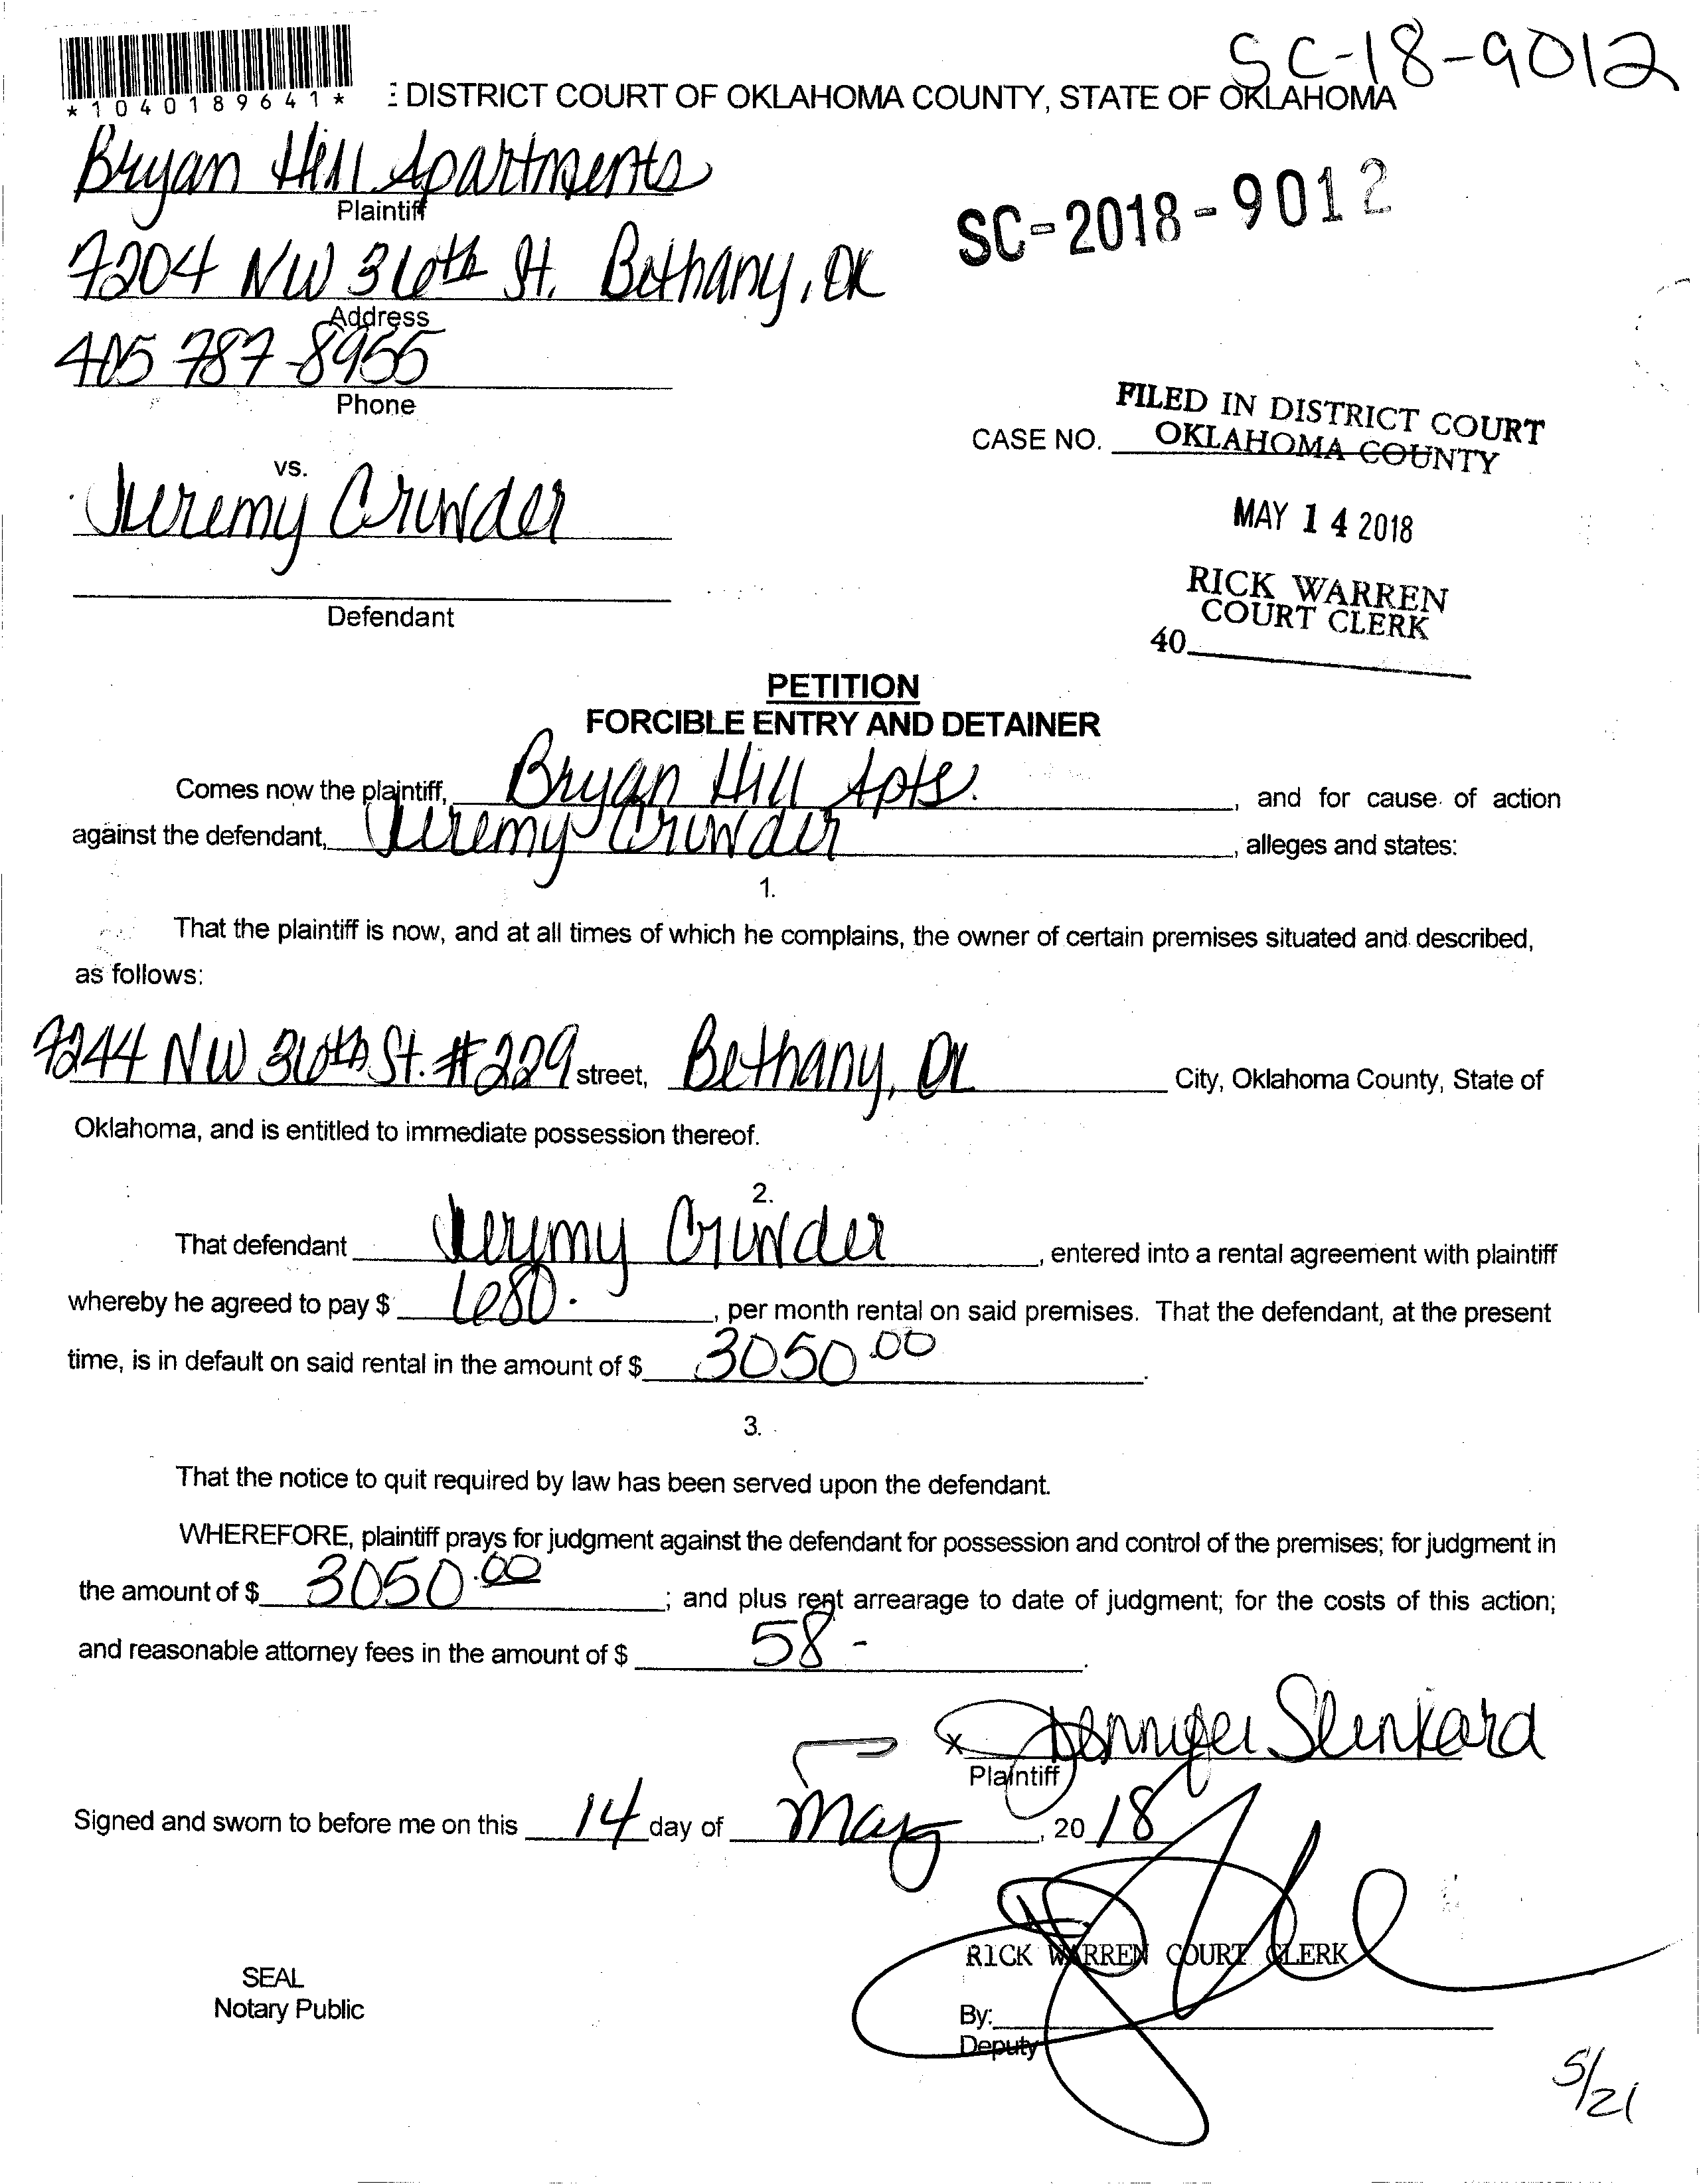 SC-18-9012
*1040189641*
: DISTRICT COURT OF OKLAHOMA COUNTY, STATE OF OKLAHOMA
Bryan Hill Apartments
Plaintiff
SC-2018-9012
7204 NW 36th St. Bethany, OK
Address
405 787-8955
Phone
FILED IN DISTRICT COURT
CASE NO. OKLAHOMA COUNTY
vs.
Jeremy
MAY 14 2018
RICK WARREN
COURT CLERK
Defendant
40
PETITION
FORCIBLE ENTRY AND DETAINER
Comes now the plaintiff, Bryan Hill Apts. , and for cause of action
against the defendant, Jeremy , alleges and states:
1.
That the plaintiff is now, and at all times of which he complains, the owner of certain premises situated and described,
as follows:
7244 NW 36th St. #229 street, Bethany, OK City, Oklahoma County, State of
Oklahoma, and is entitled to immediate possession thereof.
2.
That defendant Jeremy , entered into a rental agreement with plaintiff
whereby he agreed to pay $ 680. , per month rental on said premises. That the defendant, at the present
time, is in default on said rental in the amount of $ 3050.00 .
3.
That the notice to quit required by law has been served upon the defendant.
WHEREFORE, plaintiff prays for judgment against the defendant for possession and control of the premises; for judgment in
the amount of $ 3050.00 ; and plus rent arrearage to date of judgment; for the costs of this action;
and reasonable attorney fees in the amount of $ 58- .
x Jennifer Slenkard
Plaintiff
Signed and sworn to before me on this 14 day of May , 20 18
RICK WARREN COURT CLERK
SEAL
Notary Public
By:
Deputy
5/21